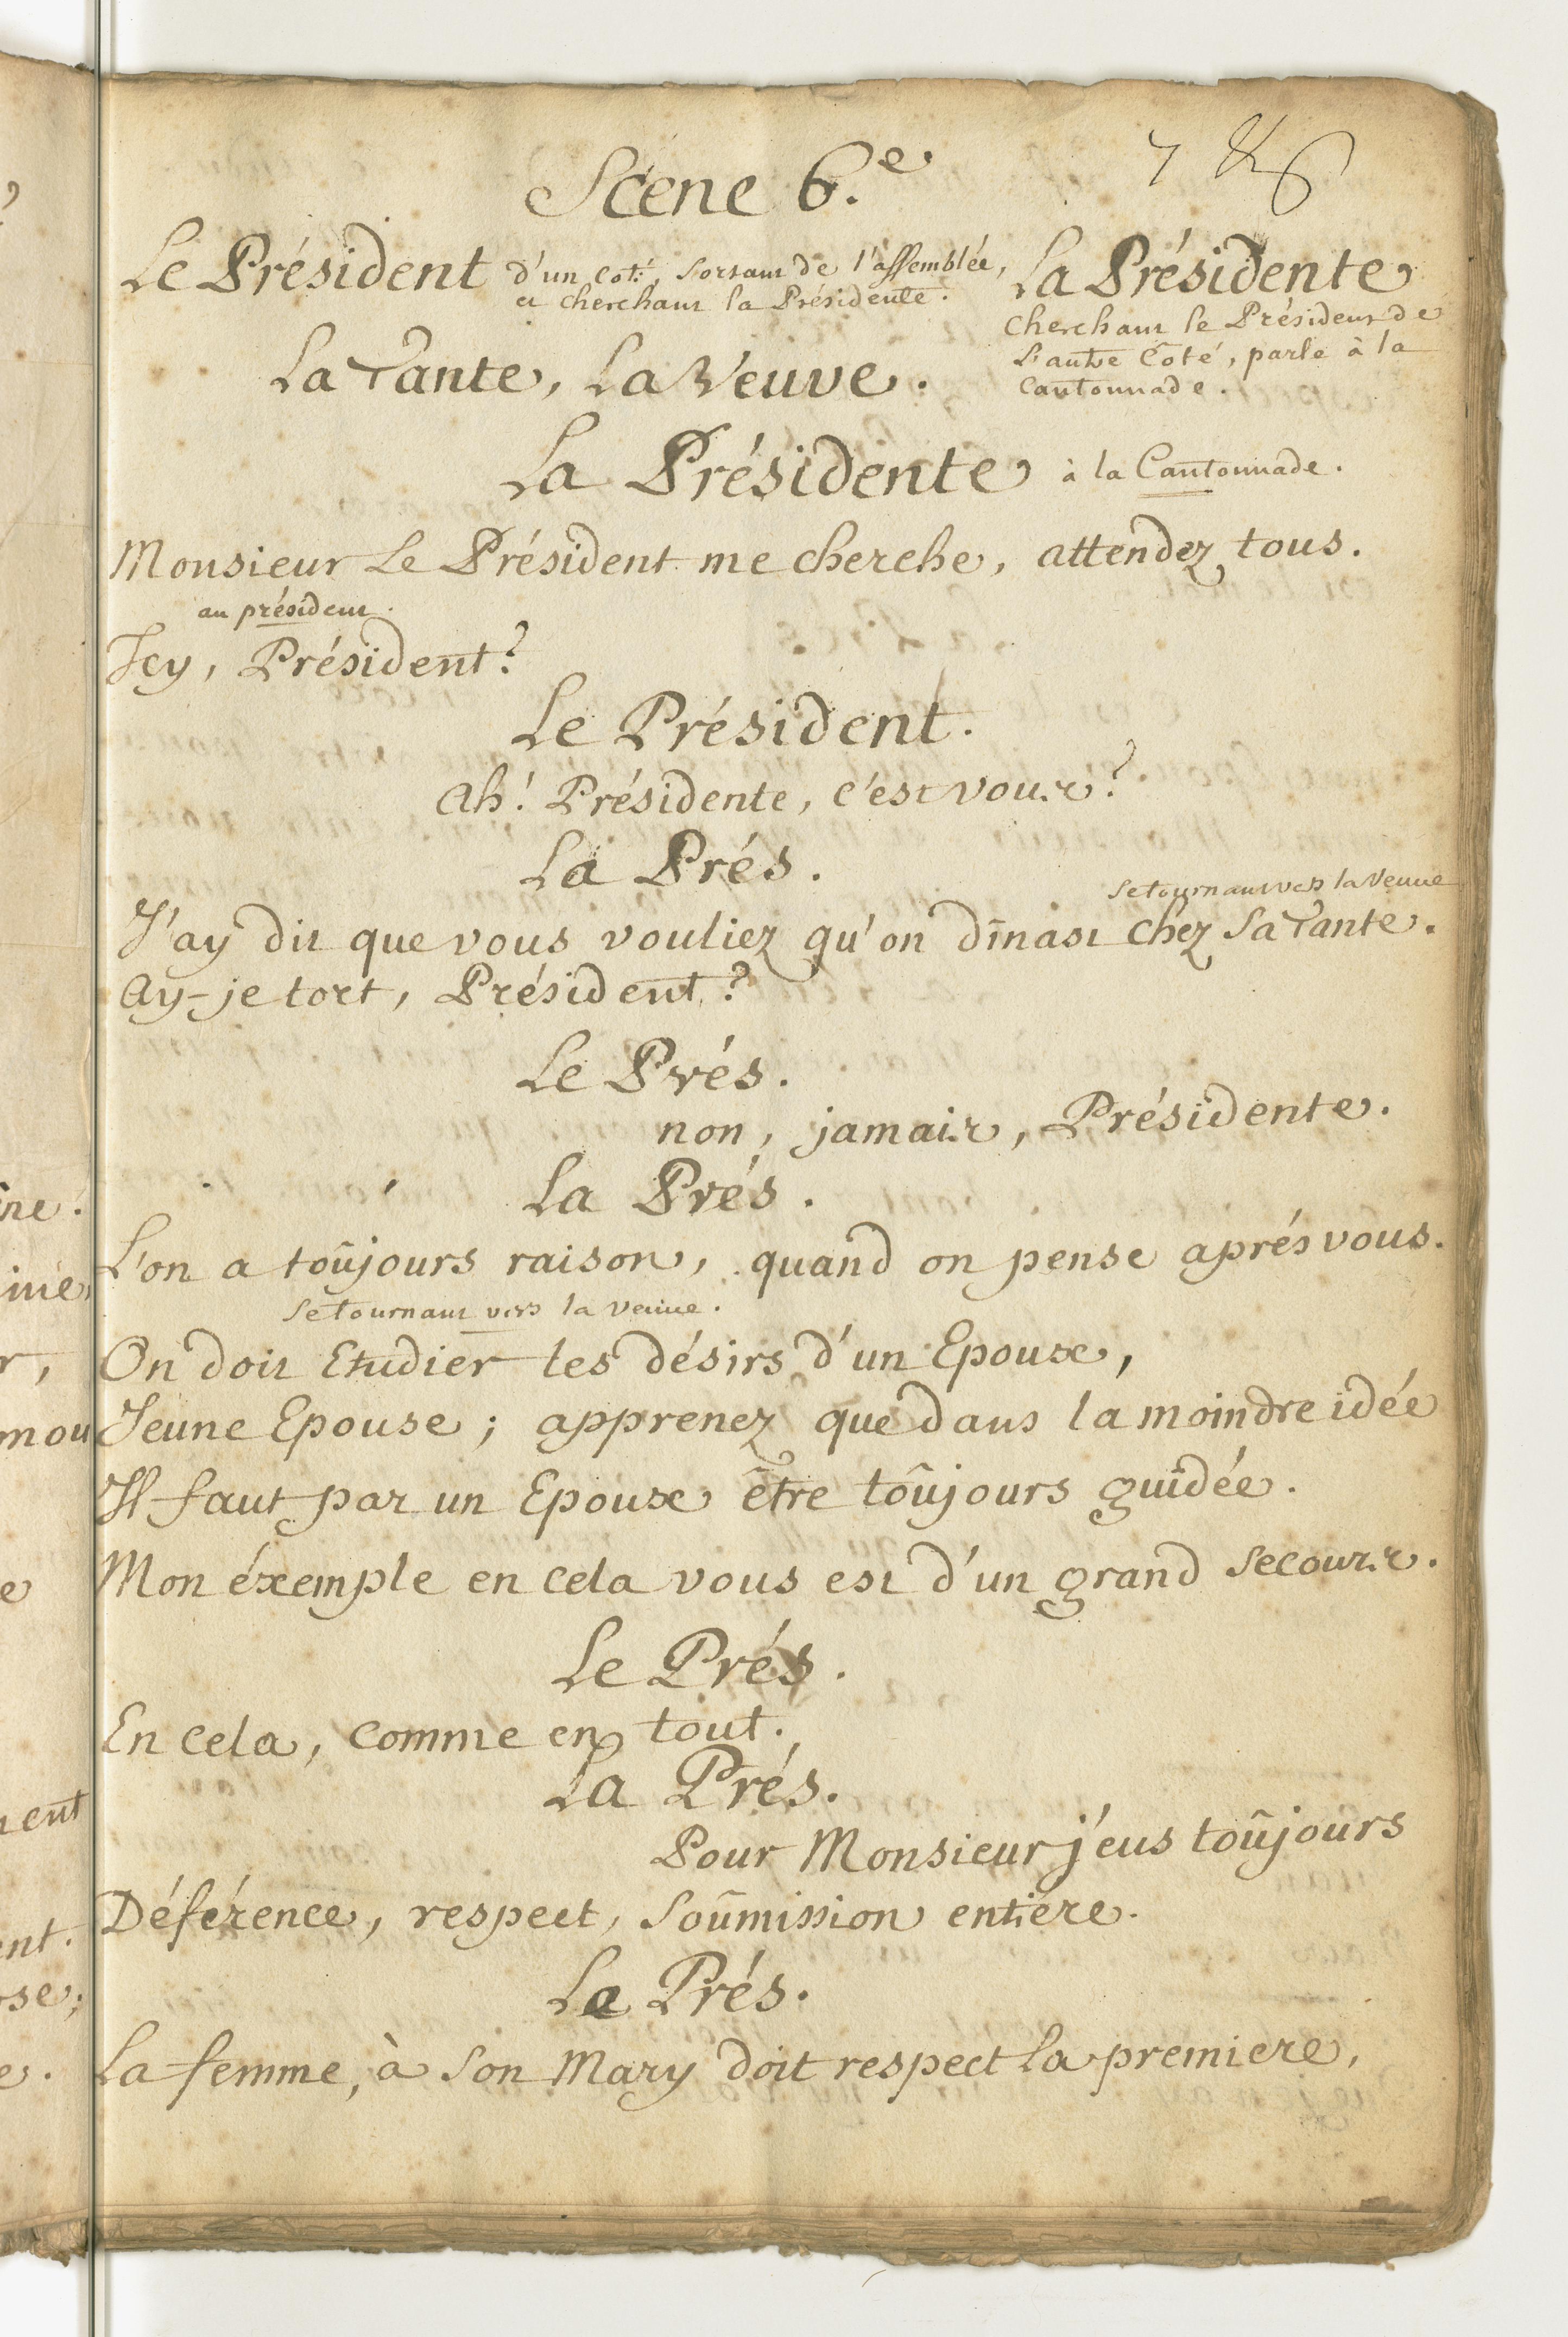 Scene 6.e
Le Président d'un coté, sortant de l'assemblée, La Présidente
et cherchant la Présidente.
cherchant le Président de
L'autre Côté, parle à la
La Tante, La Veuve.
Cantonnade.
La Présidente à la Cantonnade.
Monsieur Le Président me cherche, attendez tous.
au président.
Icy, Président?
Le Président.
Ah! Présidente, c'est vous?
La Prés.
se tournant vers la Veuve
J'ay dit que vous vouliez qu'on dînast chez sa Tante.
Ay-je tort, Président?
Le Prés.
non, jamais, Présidente.
La Prés.
L'on a toûjours raison, quand on pense aprés vous.
se tournant vers la veuve.
On doit Etudier les désirs d'un Epoux,
Jeune Epouse; apprenez que dans la moindre idée
Il faut par un Epoux être toûjours guidée.
Mon éxemple en cela vous est d'un grand secours.
Le Prés.
En cela, comme en tout.
La Prés.
Pour Monsieur j'eus toûjours
Déférence, respect, soûmission entiére.
Le Prés.
La femme, à son Mary doit respect la premiere,